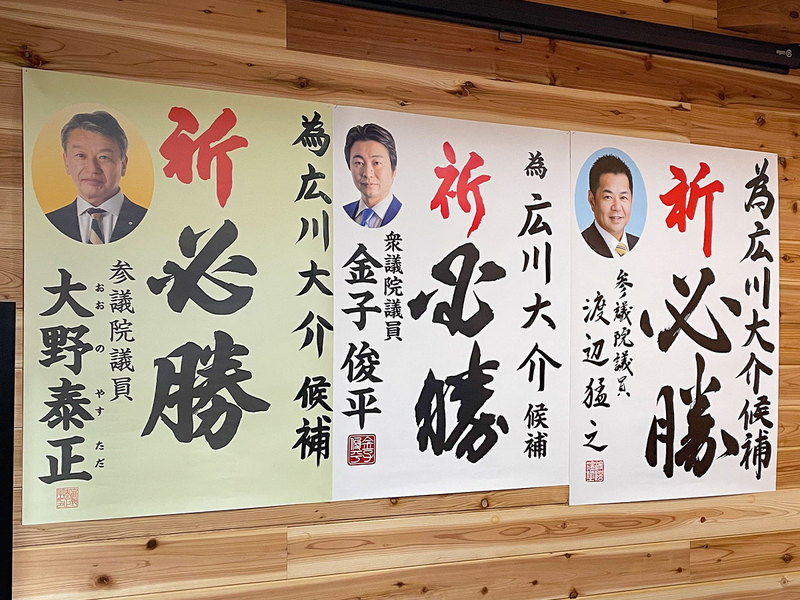 為広川大介候補
祈必勝
参議院議員
大野泰正
おおの やすただ
為広川大介候補
祈必勝
衆議院議員
金子俊平
為広川大介候補
祈必勝
参議院議員
渡辺猛之